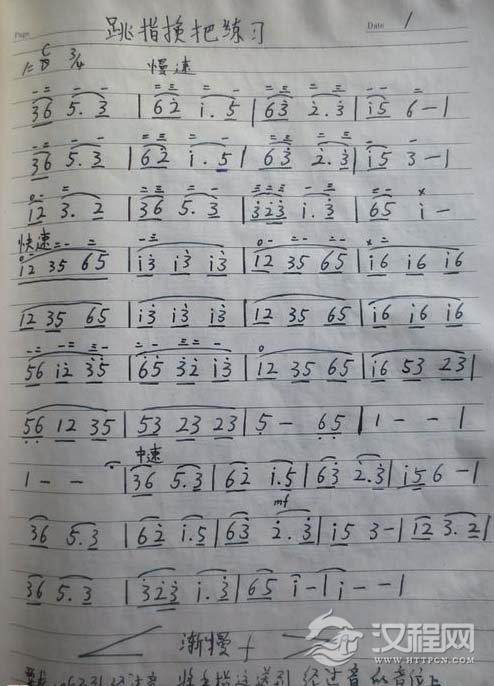 Page
跳指换把练习
Date 1
1= C D 3/4 慢速
36 5. 3 | 62̇ i. 5 | 63̇ 2̇. 3̇ | i5 6 - |
36 5. 3 | 62̇ i. 5 | 63̇ 2̇. 3̇ | i5 3 - |
12 3. 2 | 36 5. 3 | 3̇2̇3̇ i. 3̇ | 65 i -
快速
12 35 65 | i3̇ i3̇ i3̇ | 12 35 65 | i6 i6 i6
12 35 65 | i3̇ i3̇ i3̇ | 12 35 65 | i6 i6 i6
56 i2̇ 3̇5̇ | 6̇5̇ 3̇2̇ i3̇ | 12 35 65 | i6 53 23 |
5̣6̣ 12 35 | 53 23 23 | 5 - 6̣5̣ | 1 - - |
中速
1 - - | 36 5.3 | 62̇ i.5 | 63̇ 2̇.3̇ | i5 6 - |
mf
36 5.3 | 62̇ i.5 | 63̇ 2̇.3̇ | i5 3 - | 12 3.2 |
36 5.3 | 3̇2̇3̇ i.3̇ | 65 i - | i - - |
渐慢
汉程网
WWW.HTTPCN.COM